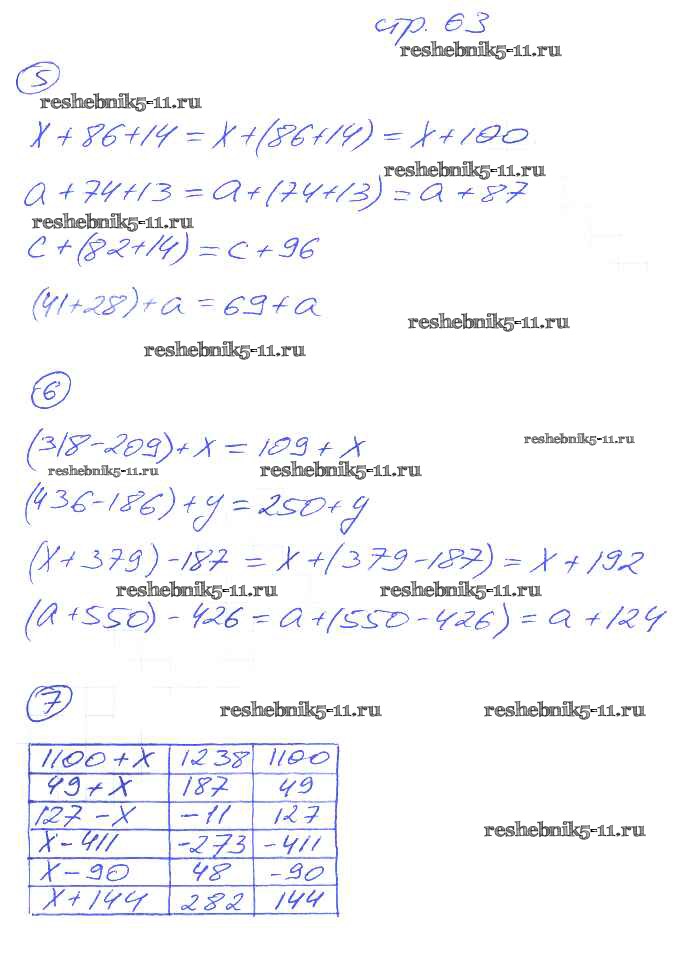 стр. 63
reshebnik5-11.ru
5
reshebnik5-11.ru
x + 86 + 14 = x + (86 + 14) = x + 100
reshebnik5-11.ru
a + 74 + 13 = a + (74 + 13) = a + 87
reshebnik5-11.ru
c + (82 + 14) = c + 96
(41 + 28) + a = 69 + a
reshebnik5-11.ru
reshebnik5-11.ru
6
(318 - 209) + x = 109 + x
reshebnik5-11.ru
reshebnik5-11.ru reshebnik5-11.ru
(436 - 186) + y = 250 + y
(x + 379) - 187 = x + (379 - 187) = x + 192
reshebnik5-11.ru reshebnik5-11.ru
(a + 550) - 426 = a + (550 - 426) = a + 124
7
reshebnik5-11.ru reshebnik5-11.ru
1100 + x 1238 1100
49 + x 187 49
127 - x -11 127
reshebnik5-11.ru
x - 411 -273 -411
x - 90 48 -90
x + 144 282 144